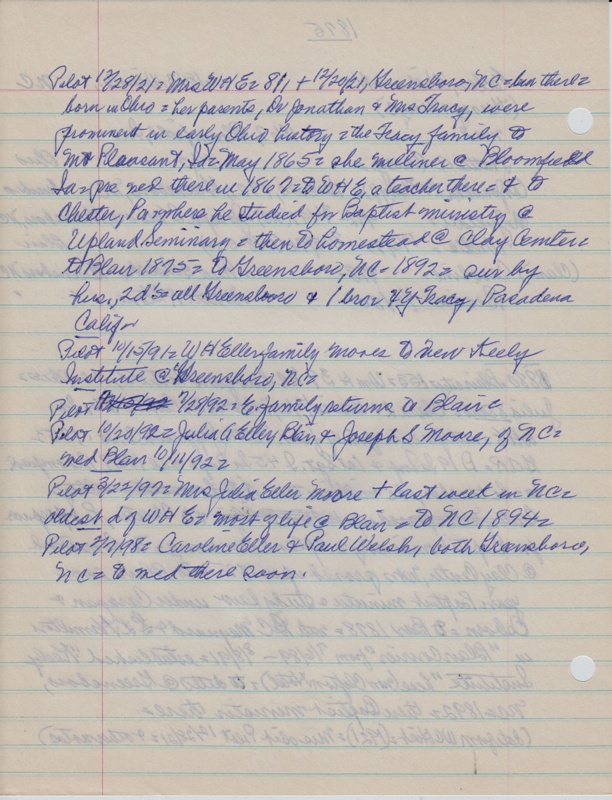 Pilot 12/28/21 = Mrs W H E = 81, + 12/20/21, Greensboro, NC = bur there =
born in Ohio = her parents, Dr Jonathan & Mrs Tracy, were
prominent in early Ohio history = the Tracy family to
Mt Pleasant, Ia = May 1865 = she milliner @ Bloomfield
Ia = pre med there in 1867 = to W H E, a teacher there = & to
Chester, Pa where he studied for Baptist ministry @
Upland Seminary = then to homestead @ Clay Center =
to Blair 1875 = to Greensboro, NC - 1892 = sur by
hus, 2 d's = all Greensboro & 1 bro = Tracy, Pasadena
Calif
Pilot 10/15/91 = W H Eller family moves to new Keely
Institute @ Greensboro, NC =
Pilot 7/28/92 = E family returns to Blair =
Pilot 10/20/92 = Julia A Eller, Blair & Joseph S Moore, of NC =
med Blair 10/11/92 =
Pilot 3/22/97 = Mrs Julia Eller Moore + last week in NC =
oldest d of W H E = most of life @ Blair = to NC 1894 =
Pilot 2/2/98 = Caroline Eller & Paul Welsh, both Greensboro,
NC = to med there soon.